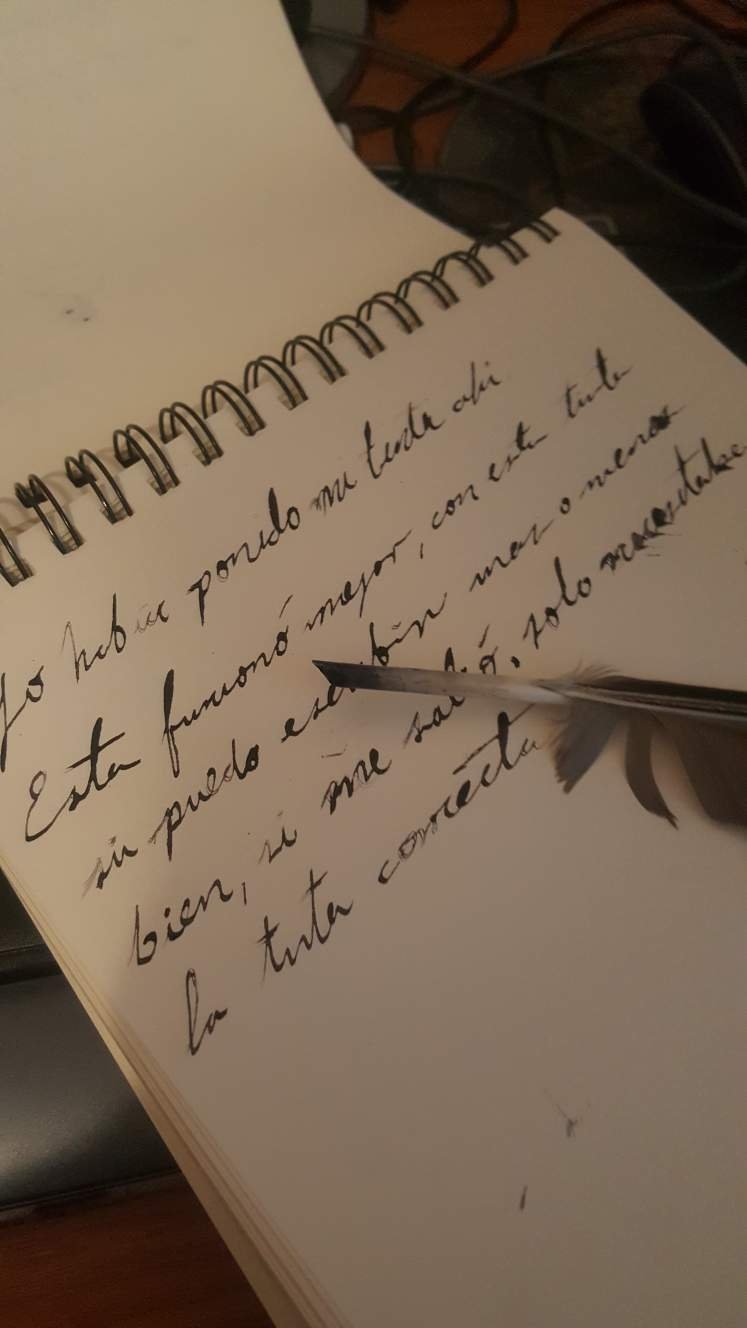 Yo habia ponido mi tinta ahi
Esta funcionó mejor, con esta tinta
si puedo escribir mas o menos
bien, si me salió, solo necesitaba
la tinta correcta